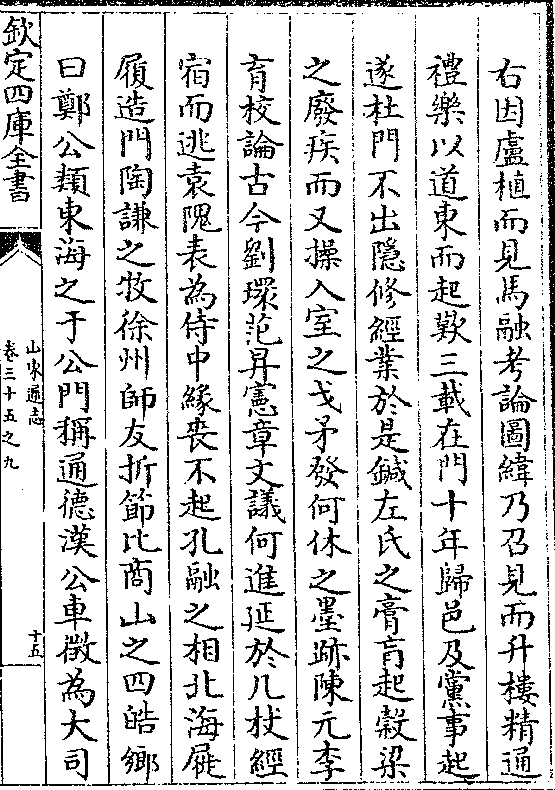 右因盧植而見馬融考論圖緯乃召見而升樓精通
禮樂以道東而起歎三載在門十年歸邑及黨事起
遂杜門不出隱修經業於是鍼左氏之膏肓起穀梁
之廢疾而又操入室之戈矛發何休之墨跡陳元李
育校論古今劉瓌范昇憲章文議何進延於几杖經
宿而逃袁隗表為侍中緣喪不起孔融之相北海屣
履造門陶謙之牧徐州師友折節比商山之四皓鄉
曰鄭公類東海之于公門稱通德漢公車徵為大司
欽定四庫全書
山東通志
卷三十五之九
十五